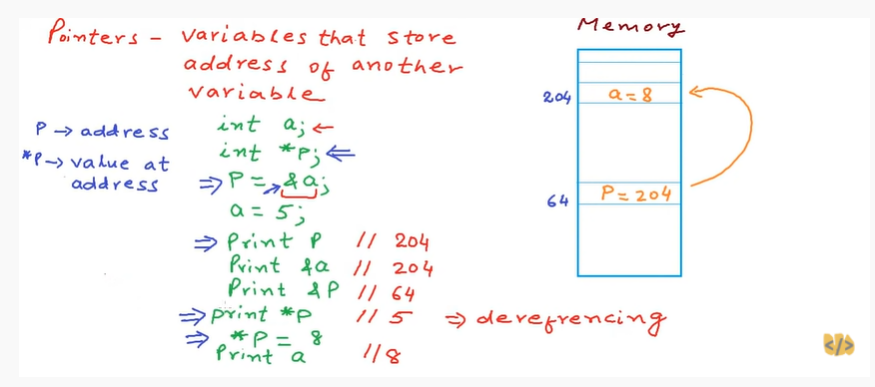 Pointers - variables that store
address of another
variable
P → address
*P → value at
address
int a; ←
int *P; ⇐
⇒ P = &a;
a = 5;
⇒ Print P // 204
Print &a // 204
Print &P // 64
⇒ print *P // 5 ⇒ derefrencing
⇒ *P = 8
Print a // 8
Memory
204 a = 8
64 P = 204
</>